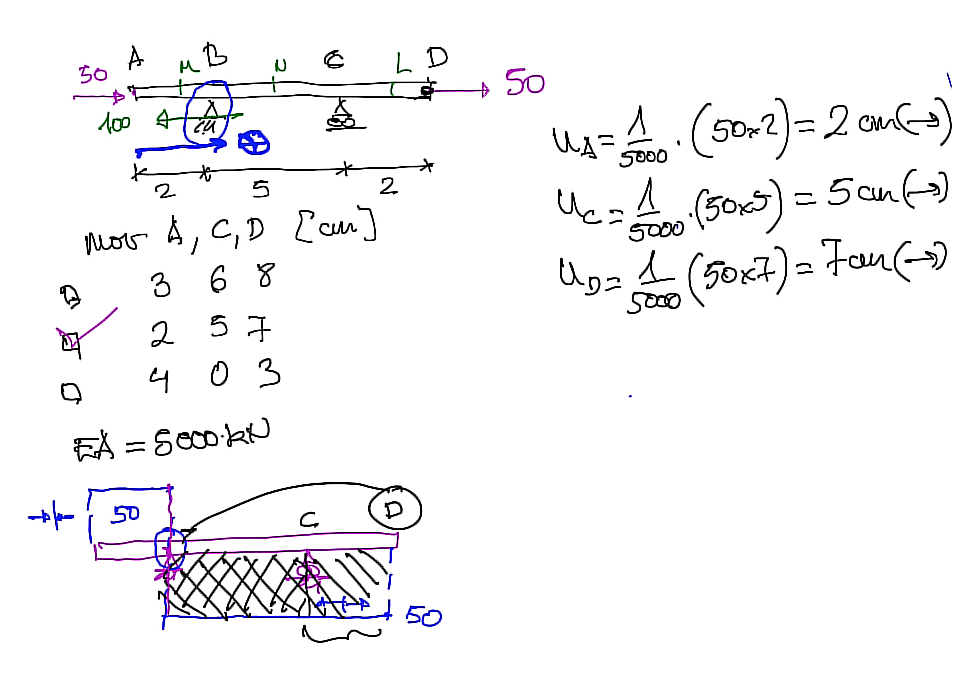 A M B N C L D
50 50
100
2 5 2
mov A, C, D [cm]
3 6 8
2 5 7
4 0 3
EA = 5000·kN
50 C D
50
u_A = 1/5000 · (50×2) = 2 cm (→)
u_C = 1/5000 · (50×5) = 5 cm (→)
u_D = 1/5000 (50×7) = 7 cm (→)